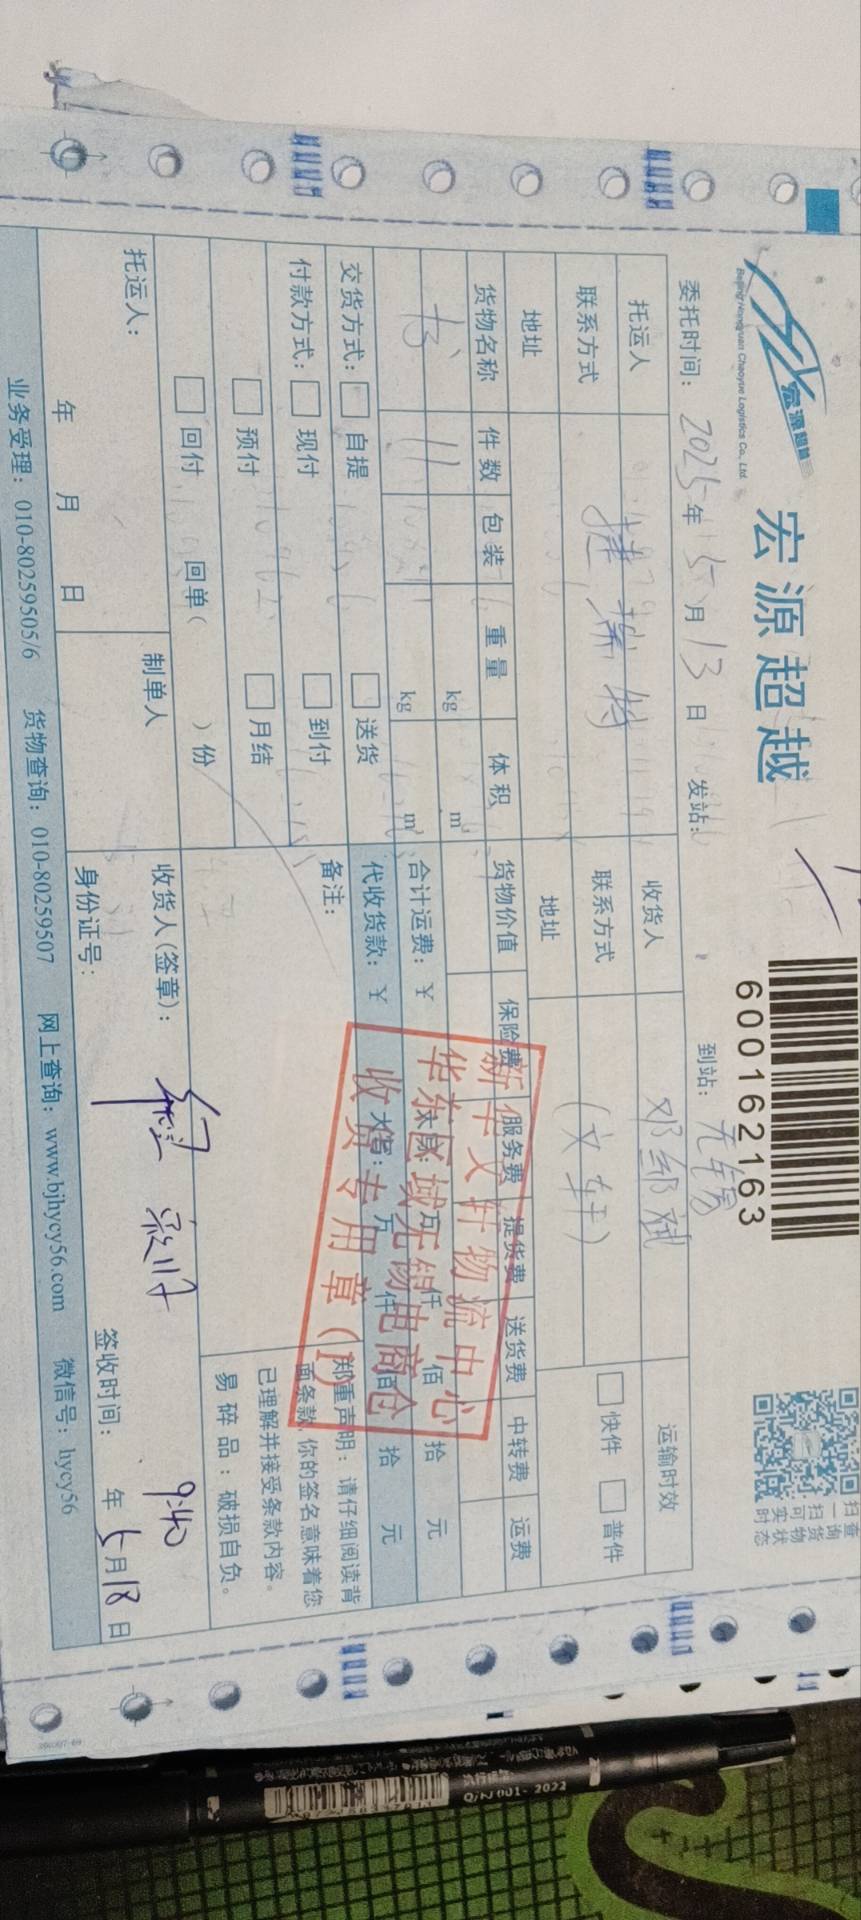 宏源超越
Beijing Hongyuan Chaoyue Logistics Co., Ltd.
宏源超越
6000162163
扫一扫可实时
查询货物状态
委托时间：2025年5月13日 发站： 到站：无锡
托运人 捷瑞特 收货人 邓绍斌 运输时效
联系方式 联系方式 (文轩) 快件 普件
地址 地址
货物名称 件数 包装 重量 体积 货物价值 保险费 服务费 提货费 送货费 中转费 运费
书 11 kg m³
kg m³ 合计运费：¥ 大写： 万 仟 佰 拾 元
交货方式： 自提 送货 代收货款：¥ 大写： 万 仟 佰 拾 元
付款方式： 现付 到付 备注：
预付 月结
回付 回单（ ）份
郑重声明：请仔细阅读背
面条款，你的签名意味着您
已理解并接受条款内容。
易碎品：破损自负。
新华文轩物流中心
华东区域无锡电商仓
收货专用章(1)
托运人： 制单人 收货人(签章)：
9:40
年 月 日 身份证号： 签收时间： 年5月18日
业务受理：010-80259505/6 货物查询：010-80259507 网上查询：www.bjhycy56.com 微信号：hycy56
Q/ZJ 001-2022